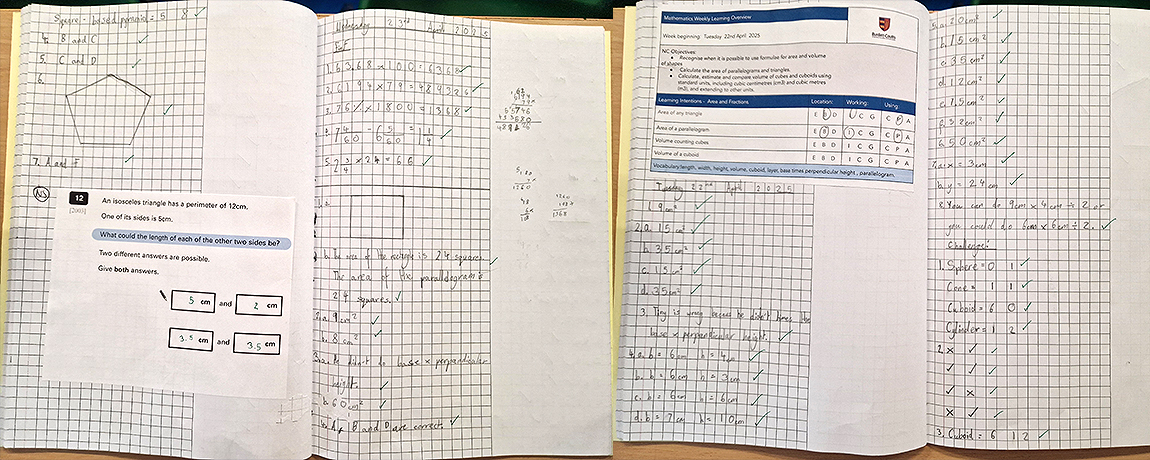 Square - based pyramid = 5 8 ✓
4. B and C ✓
5. C and D ✓
6.
✓
7. A and F ✓
NS
12
[2003]
An isosceles triangle has a perimeter of 12cm.
One of its sides is 5cm.
What could the length of each of the other two sides be?
Two different answers are possible.
Give both answers.
5 cm and 2 cm
3.5 cm and 3.5 cm
Wednesday 23rd April 2025
1. 63.68 x 100 = 6368 ✓
2. 6194 x 79 = 489326 ✓
3. 76% x 1800 = 1368 ✓
b. The area of the rectangle is 24 squares. ✓
The area of the parallelogram is
24 squares. ✓
a. 9cm² ✓
b. 8cm² ✓
3.a. He didn't do base x perpendicular
height. ✓
b. 60cm² ✓
A, B and D are correct. ✓
Mathematics Weekly Learning Overview
Week beginning: Tuesday 22nd April 2025
NC Objectives:
• Recognise when it is possible to use formulae for area and volume
of shapes
• Calculate the area of parallelograms and triangles.
• Calculate, estimate and compare volume of cubes and cuboids using
standard units, including cubic centimetres (cm3) and cubic metres
(m3), and extending to other units.
Learning Intentions - Area and Fractions Location: Working: Using:
Area of any triangle E B D I C G C P A
Area of a parallelogram E B D I C G C P A
Volume counting cubes E B D I C G C P A
Volume of a cuboid E B D I C G C P A
Vocabulary: length, width, height, volume, cuboid, layer, base times perpendicular height, parallelogram.
Tuesday 22nd April 2025
1. 9cm² ✓
2.a. 15cm² ✓
b. 35cm² ✓
c. 15cm² ✓
d. 35cm² ✓
3. Tiny is wrong because he didn't times the
base x perpendicular height. ✓
4.a. b = 6cm h = 4cm ✓
b. b = 6cm h = 3cm ✓
c. b = 6cm h = 6cm ✓
d. b = 7cm h = 10cm ✓
5.a. 20cm² ✓
b. 15cm² ✓
c. 35cm² ✓
d. 12cm² ✓
e. 7.5cm² ✓
f. 32cm² ✓
6. 50cm² ✓
7.a. x = 3cm ✓
b. y = 24cm ✓
8. You can do 9cm x 4cm ÷ 2 or
you could do 6cm x 6cm ÷ 2. ✓
Challenge:
1. Sphere = 0 1 ✓
Cone = 1 1 ✓
Cuboid = 6 0 ✓
Cylinder = 1 2 ✓
2. x ✓ ✓
✓ ✓ ✓
✓ x ✓
x ✓ ✓
3. Cuboid = 6 12 ✓